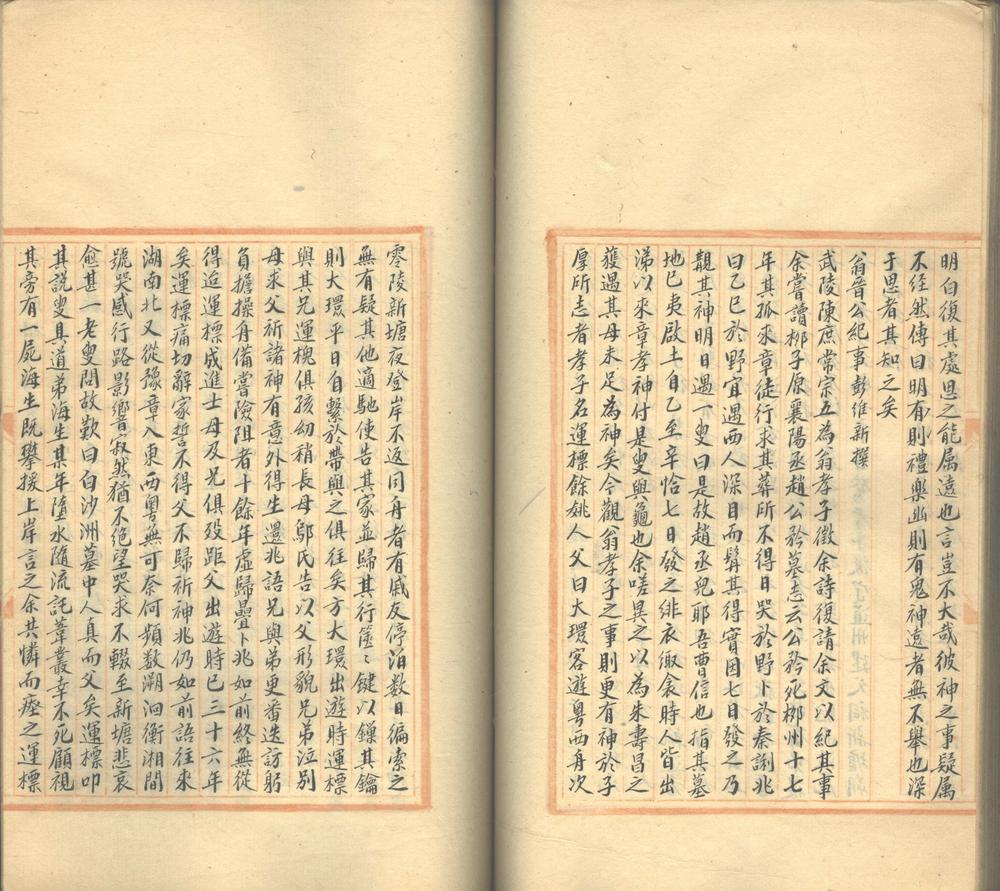 明白復其處思之能属遠也言豈不大哉彼神之事疑属
不经然傳曰明有則禮樂幽則有鬼神遠者無不舉也深
于思者其知之矣
翁晉公紀事彭維新撰
武陵陳庶常宗五為翁孝子徵余詩復請余文以紀其事
余嘗讀梛子原襄陽丞趙公矜墓志云公矜死梛州十七
年其孤来章徒行求其葬所不得日哭於野卜於秦誗兆
曰乙巳於野宜遇西人深目而髯其得實因七日發之乃
覩其神明日遇一叟曰是故趙丞兒耶吾曹信也指其墓
地巳夷啟土自乙至辛恰七日發之緋衣緅衾時人皆出
涕以来章孝神付是叟與龜也余嗟異之以為朱壽昌之
獲過其母未足為神矣今觀翁孝子之事則更有神於子
厚所志者孝子名運標餘姚人父曰大環客遊粤西舟次
零陵新塘夜登岸不返同舟者有戚友停泊数日編索之
無有疑其他適馳使告其家並歸其行篋篋键以鏁其鑰
則大環平日自繋於帶與之俱往矣方大環出遊時運標
與其兄運槐俱孩幼稍長母鄔氏告以父形貌兄弟泣别
母求父祈諸神有意外得生還兆語兄與弟更番迭訪躬
負擔操舟備嘗險阻者十餘年虚歸疊卜兆如前終無從
得迨運標成進士母及兄俱殁距父出遊時已三十六年
矣運標痛切辭家誓不得父不歸祈神兆仍如前語往来
湖南北又從豫章入東西粤無可奈何頻数溯洄衡湘間
號哭感行路影響寂然猶不绝望哭求不輟至新塘悲哀
愈甚一老叟問故歎曰白沙洲墓中人真而父矣運標叩
其説叟具道弟海生某年墮水隨流託葦叢幸不死顧視
其旁有一屍海生既攀援上岸言之余共憐而瘞之運標